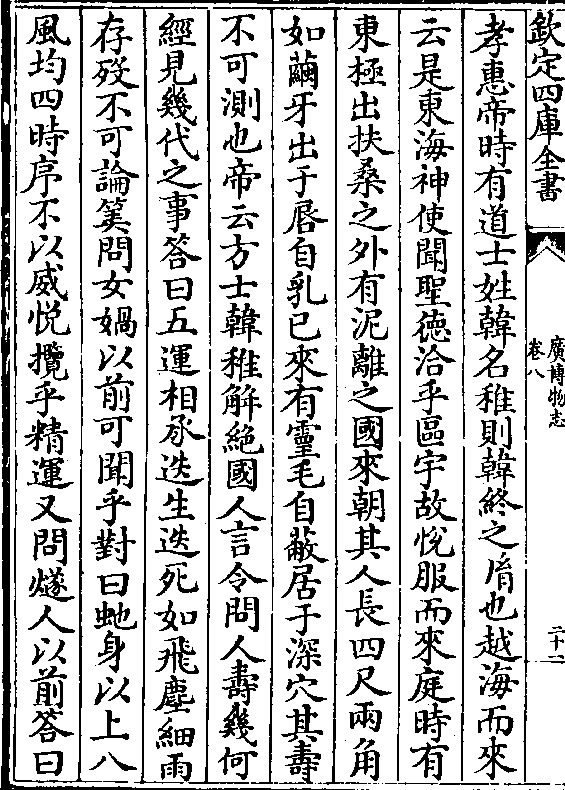 欽定四庫全書
廣博物志
卷八
二十二
孝惠帝時有道士姓韓名稚則韓終之㣧也越海而來
云是東海神使聞聖德洽乎區宇故悅服而來庭時有
東極出扶桑之外有泥離之國來朝其人長四尺兩角
如繭牙出于唇自乳已來有靈毛自蔽居于深穴其壽
不可測也帝云方士韓稚解絶國人言令問人壽幾何
經見幾代之事答曰五運相承迭生迭死如飛塵細雨
存歿不可論筭問女媧以前可聞乎對曰虵身以上八
風均四時序不以威悅攬乎精運又問燧人以前答曰